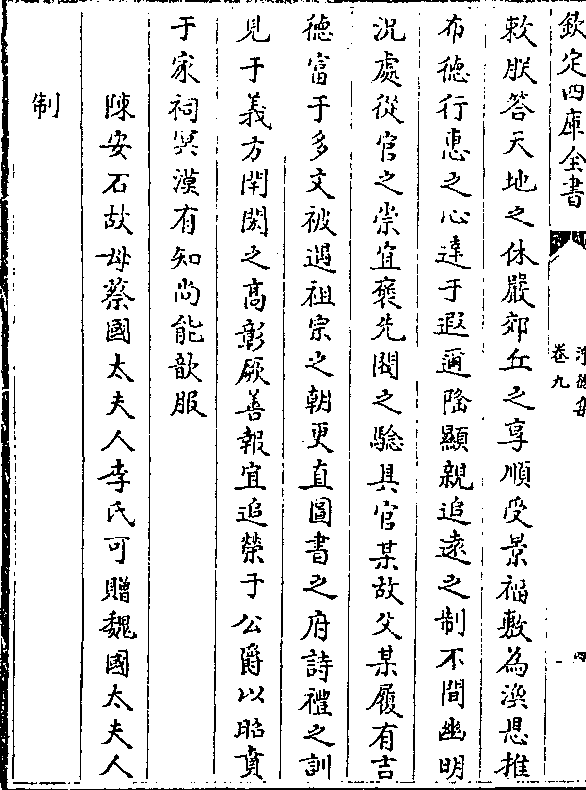 欽定四庫全書
卷九
四
敕朕答天地之休嚴郊丘之享順受景福敷為渙恩推
布徳行惠之心達于遐邇隂顯親追遠之制不間幽明
況處從官之崇宜褒先閥之騐具官某故父某履有吉
徳富于多文被遇祖宗之朝更直圖書之府詩禮之訓
見于義方閈閎之高彰厥善報宜追榮于公爵以昭賁
于家祠冥漠有知尚能歆服
陳安石故母蔡國太夫人李氏可贈魏國太夫人
制